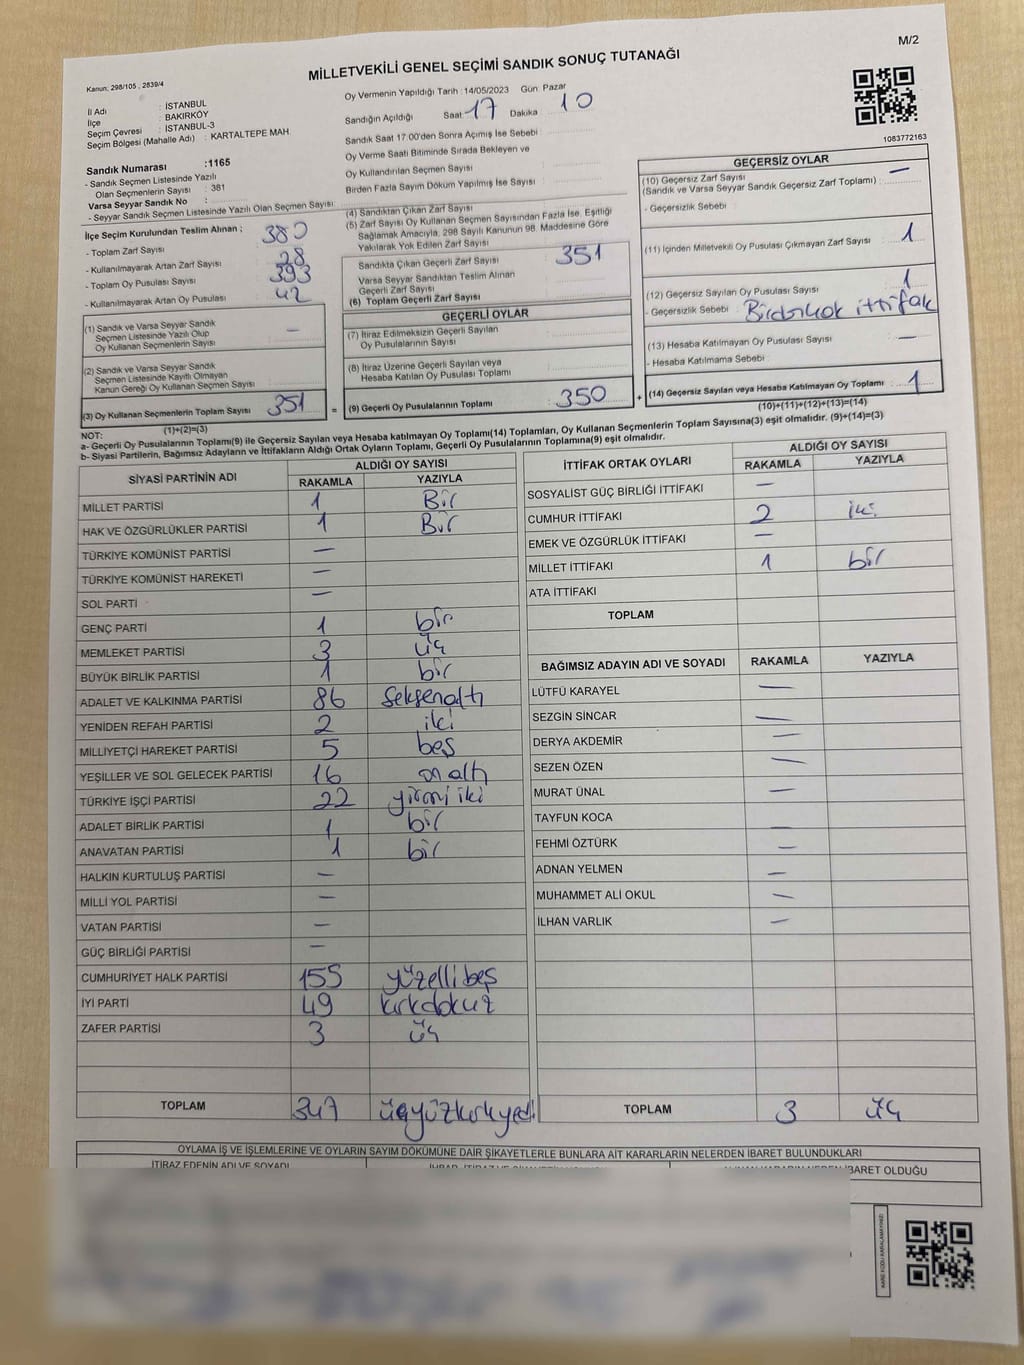 M/2
MİLLETVEKİLİ GENEL SEÇİMİ SANDIK SONUÇ TUTANAĞI
Kanun; 298/105 , 2839/4
İl Adı : İSTANBUL
İlçe : BAKIRKÖY
Seçim Çevresi : İSTANBUL-3
Seçim Bölgesi (Mahalle Adı) : KARTALTEPE MAH.
Sandık Numarası :1165
- Sandık Seçmen Listesinde Yazılı
Olan Seçmenlerin Sayısı : 381
Varsa Seyyar Sandık No :
- Seyyar Sandık Seçmen Listesinde Yazılı Olan Seçmen Sayısı :
Oy Vermenin Yapıldığı Tarih :14/05/2023 Gün Pazar
Sandığın Açıldığı Saat 17 Dakika 10
Sandık Saat 17.00'den Sonra Açımış İse Sebebi :
Oy Verme Saati Bitiminde Sırada Bekleyen ve
Oy Kullandırılan Seçmen Sayısı :
Birden Fazla Sayım Döküm Yapılmış İse Sayısı :
1083772163
İlçe Seçim Kurulundan Teslim Alınan ;
- Toplam Zarf Sayısı 380
- Kullanılmayarak Artan Zarf Sayısı 28
- Toplam Oy Pusulası Sayısı 393
- Kullanılmayarak Artan Oy Pusulası 42
(1) Sandık ve Varsa Seyyar Sandık
Seçmen Listesinde Yazılı Olup
Oy Kullanan Seçmenlerin Sayısı : —
(2) Sandık ve Varsa Seyyar Sandık
Seçmen Listesinde Kayıtlı Olmayan
Kanun Gereği Oy Kullanan Seçmen Sayısı :
(3) Oy Kullanan Seçmenlerin Toplam Sayısı 351
(1)+(2)=(3)
(4) Sandıktan Çıkan Zarf Sayısı
(5) Zarf Sayısı Oy Kullanan Seçmen Sayısından Fazla İse, Eşitliği
Sağlamak Amacıyla, 298 Sayılı Kanunun 98. Maddesine Göre
Yakılarak Yok Edilen Zarf Sayısı
Sandıkta Çıkan Geçerli Zarf Sayısı : 351
Varsa Seyyar Sandıktan Teslim Alınan
Geçerli Zarf Sayısı
(6) Toplam Geçerli Zarf Sayısı
GEÇERLİ OYLAR
(7) İtiraz Edilmeksizin Geçerli Sayılan
Oy Pusulalarının Sayısı :
(8) İtiraz Üzerine Geçerli Sayılan veya
Hesaba Katılan Oy Pusulası Toplamı :
= (9) Geçerli Oy Pusulalarının Toplamı : 350 +
GEÇERSİZ OYLAR
(10) Geçersiz Zarf Sayısı —
(Sandık ve Varsa Seyyar Sandık Geçersiz Zarf Toplamı) :
- Geçersizlik Sebebi :
(11) İçinden Milletvekili Oy Pusulası Çıkmayan Zarf Sayısı : 1
(12) Geçersiz Sayılan Oy Pusulası Sayısı : 1
- Geçersizlik Sebebi : Birdençok ittifak
(13) Hesaba Katılmayan Oy Pusulası Sayısı : —
- Hesaba Katılmama Sebebi :
(14) Geçersiz Sayılan veya Hesaba Katılmayan Oy Toplamı : 1
(10)+(11)+(12)+(13)=(14)
NOT:
a- Geçerli Oy Pusulalarının Toplamı(9) ile Geçersiz Sayılan veya Hesaba katılmayan Oy Toplamı(14) Toplamları, Oy Kullanan Seçmenlerin Toplam Sayısına(3) eşit olmalıdır. (9)+(14)=(3)
b- Siyasi Partilerin, Bağımsız Adayların ve İttifakların Aldığı Ortak Oyların Toplamı, Geçerli Oy Pusulalarının Toplamına(9) eşit olmalıdır.
SİYASİ PARTİNİN ADI ALDIĞI OY SAYISI
RAKAMLA YAZIYLA
MİLLET PARTİSİ 1 Bir
HAK VE ÖZGÜRLÜKLER PARTİSİ 1 Bir
TÜRKİYE KOMÜNİST PARTİSİ —
TÜRKİYE KOMÜNİST HAREKETİ —
SOL PARTİ —
GENÇ PARTİ 1 bir
MEMLEKET PARTİSİ 3 üç
BÜYÜK BİRLİK PARTİSİ 1 bir
ADALET VE KALKINMA PARTİSİ 86 Seksenaltı
YENİDEN REFAH PARTİSİ 2 iki
MİLLİYETÇİ HAREKET PARTİSİ 5 beş
YEŞİLLER VE SOL GELECEK PARTİSİ 16 onaltı
TÜRKİYE İŞÇİ PARTİSİ 22 yirmi iki
ADALET BİRLİK PARTİSİ 1 bir
ANAVATAN PARTİSİ 1 bir
HALKIN KURTULUŞ PARTİSİ —
MİLLİ YOL PARTİSİ —
VATAN PARTİSİ —
GÜÇ BİRLİĞİ PARTİSİ —
CUMHURİYET HALK PARTİSİ 155 yüzellibeş
İYİ PARTİ 49 kırkdokuz
ZAFER PARTİSİ 3 üç
TOPLAM 347 üçyüzkırkyedi
İTTİFAK ORTAK OYLARI ALDIĞI OY SAYISI
RAKAMLA YAZIYLA
SOSYALİST GÜÇ BİRLİĞİ İTTİFAKI —
CUMHUR İTTİFAKI 2 iki
EMEK VE ÖZGÜRLÜK İTTİFAKI —
MİLLET İTTİFAKI 1 bir
ATA İTTİFAKI
TOPLAM
BAĞIMSIZ ADAYIN ADI VE SOYADI RAKAMLA YAZIYLA
LÜTFÜ KARAYEL —
SEZGİN SİNCAR —
DERYA AKDEMİR —
SEZEN ÖZEN —
MURAT ÜNAL —
TAYFUN KOCA
FEHMİ ÖZTÜRK —
ADNAN YELMEN —
MUHAMMET ALİ OKUL —
İLHAN VARLIK —
TOPLAM 3 üç
OYLAMA İŞ VE İŞLEMLERİNE VE OYLARIN SAYIM DÖKÜMÜNE DAİR ŞİKAYETLERLE BUNLARA AİT KARARLARIN NELERDEN İBARET BULUNDUKLARI
İTİRAZ EDENİN ADI VE SOYADI
İBARET OLDUĞU